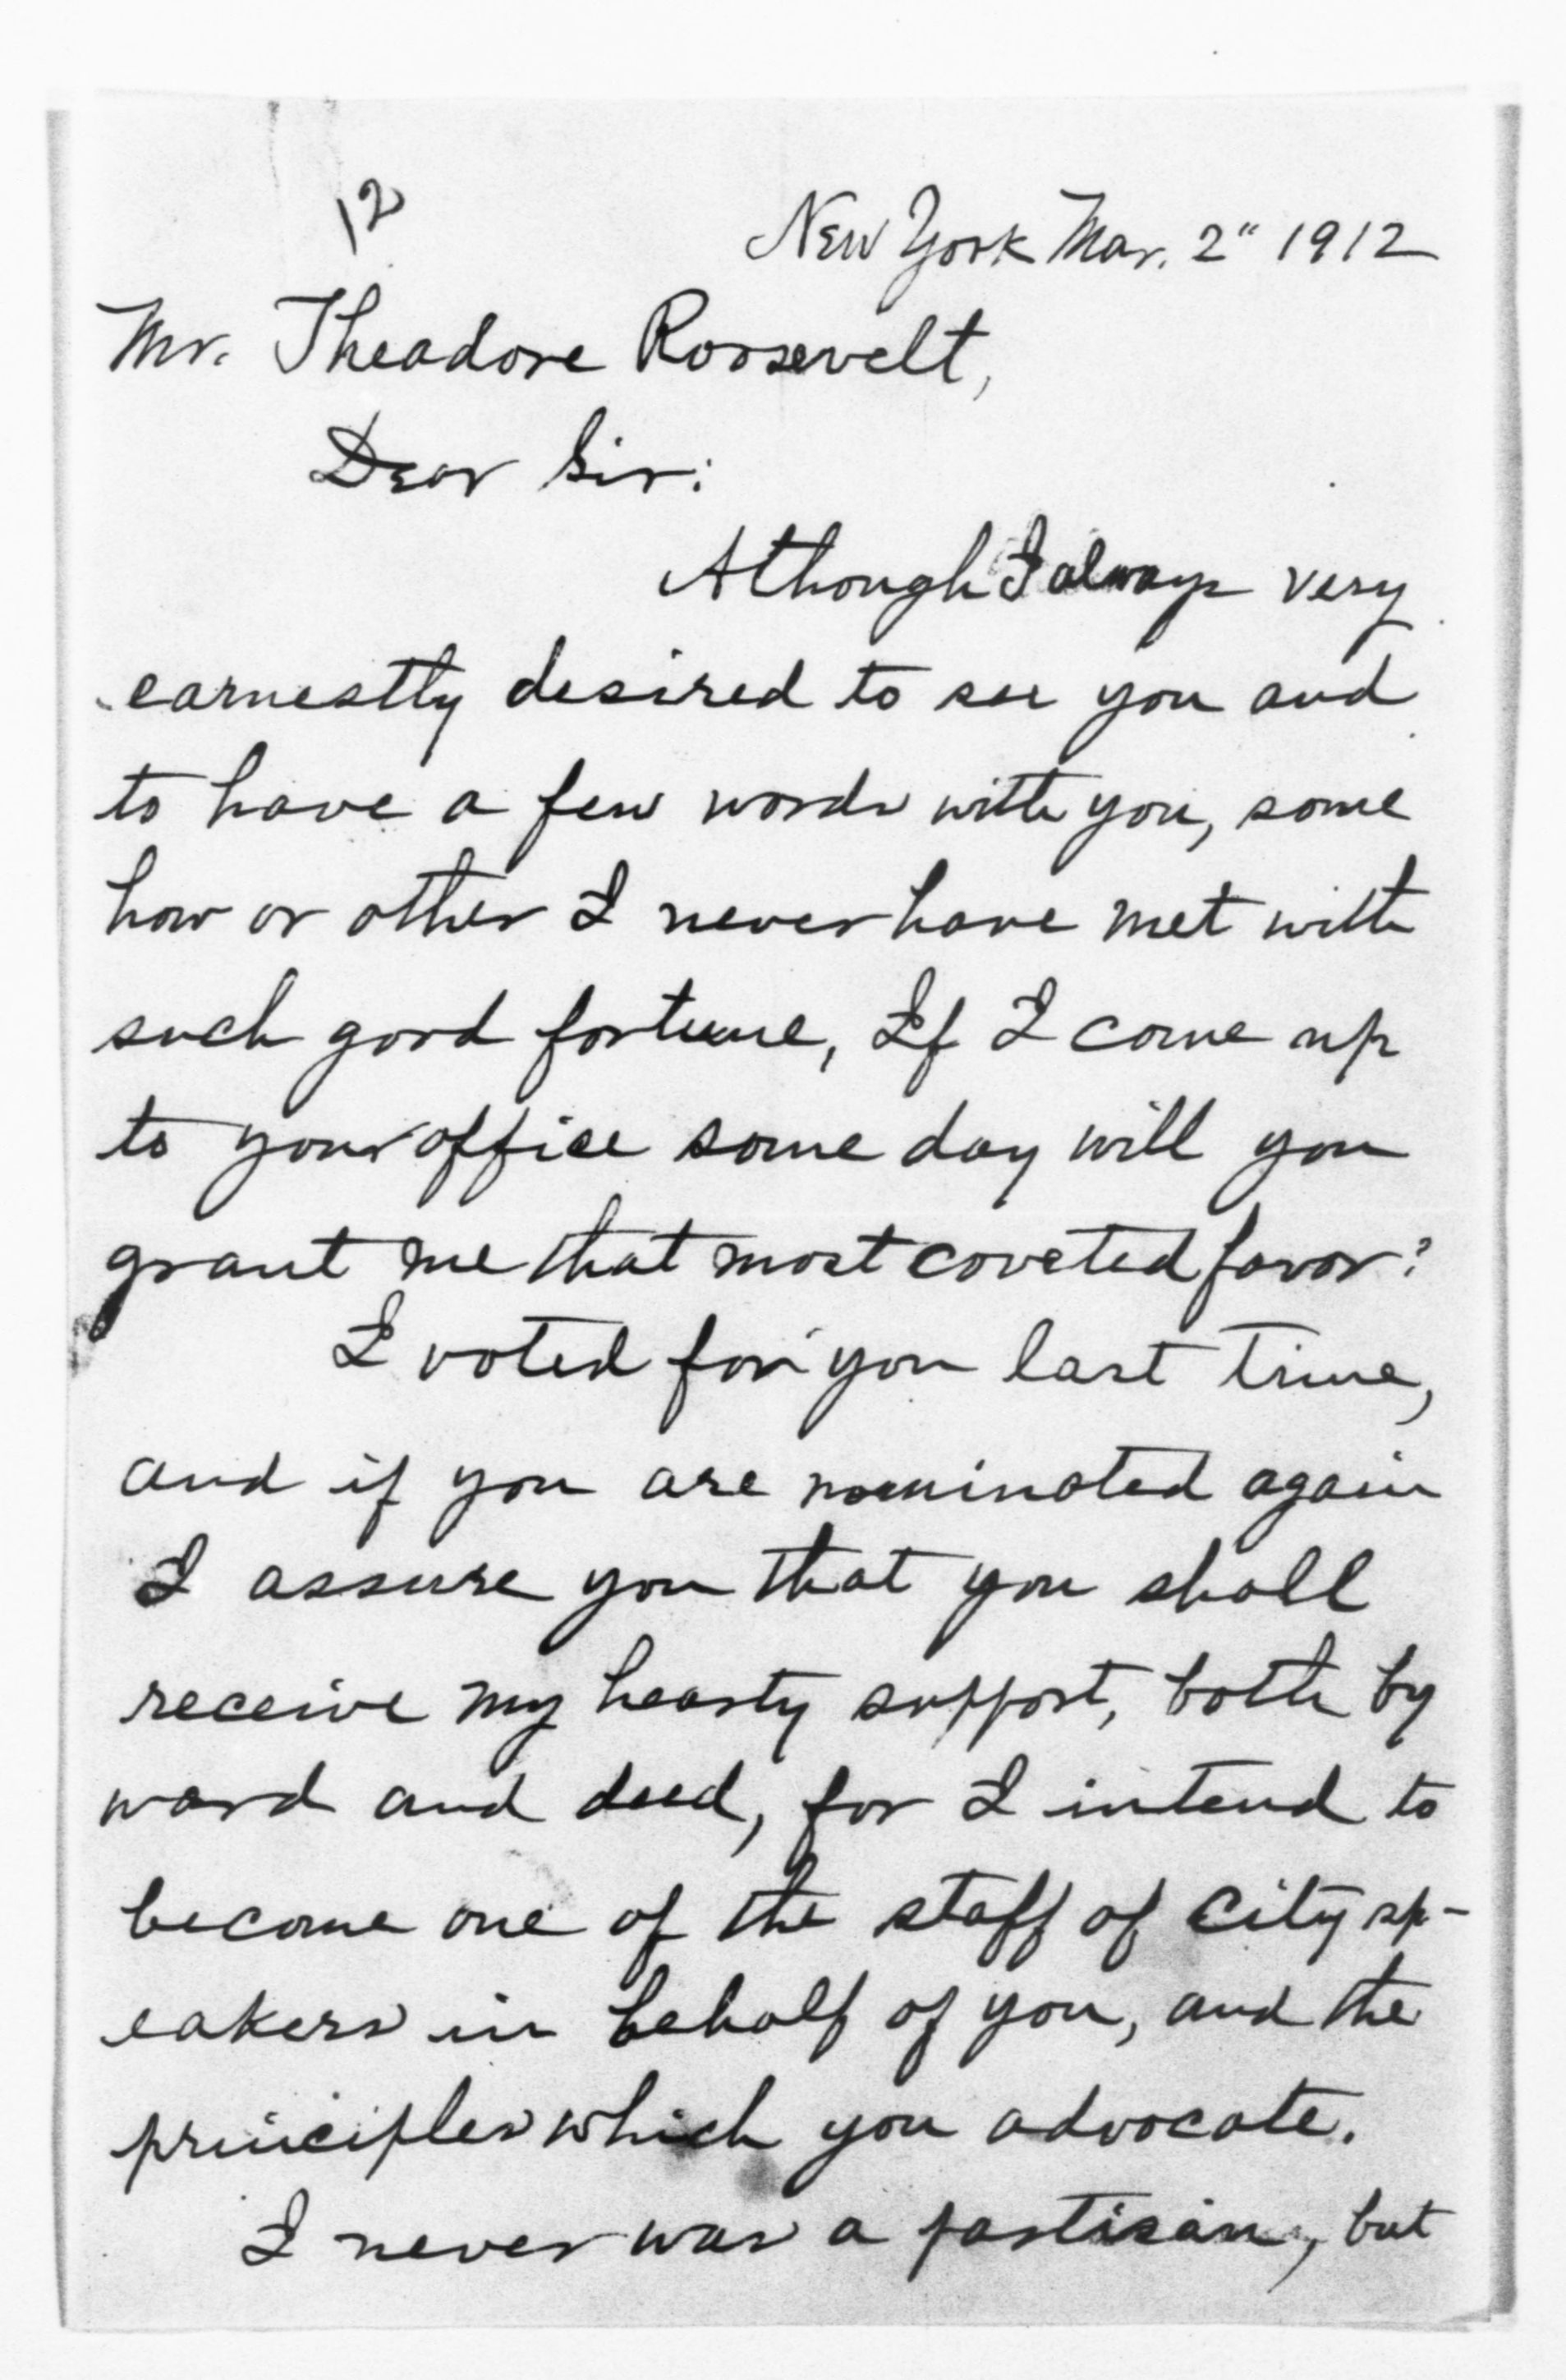 12
New York Mar. 2" 1912
Mr. Theadore Roosevelt,
Dear Sir:
Athough I always very
earnestly desired to see you and
to have a few words with you, some
how or other I never have met with
such good fortune, If I come up
to your office some day will you
grant me that most coveted favor?
I voted for you last time,
and if you are nominated again
I assure you that you shall
receive my hearty support, both by
word and deed, for I intend to
become one of the staff of city sp-
eakers in behalf of you, and the
principles which you advocate.
I never was a partisan, but